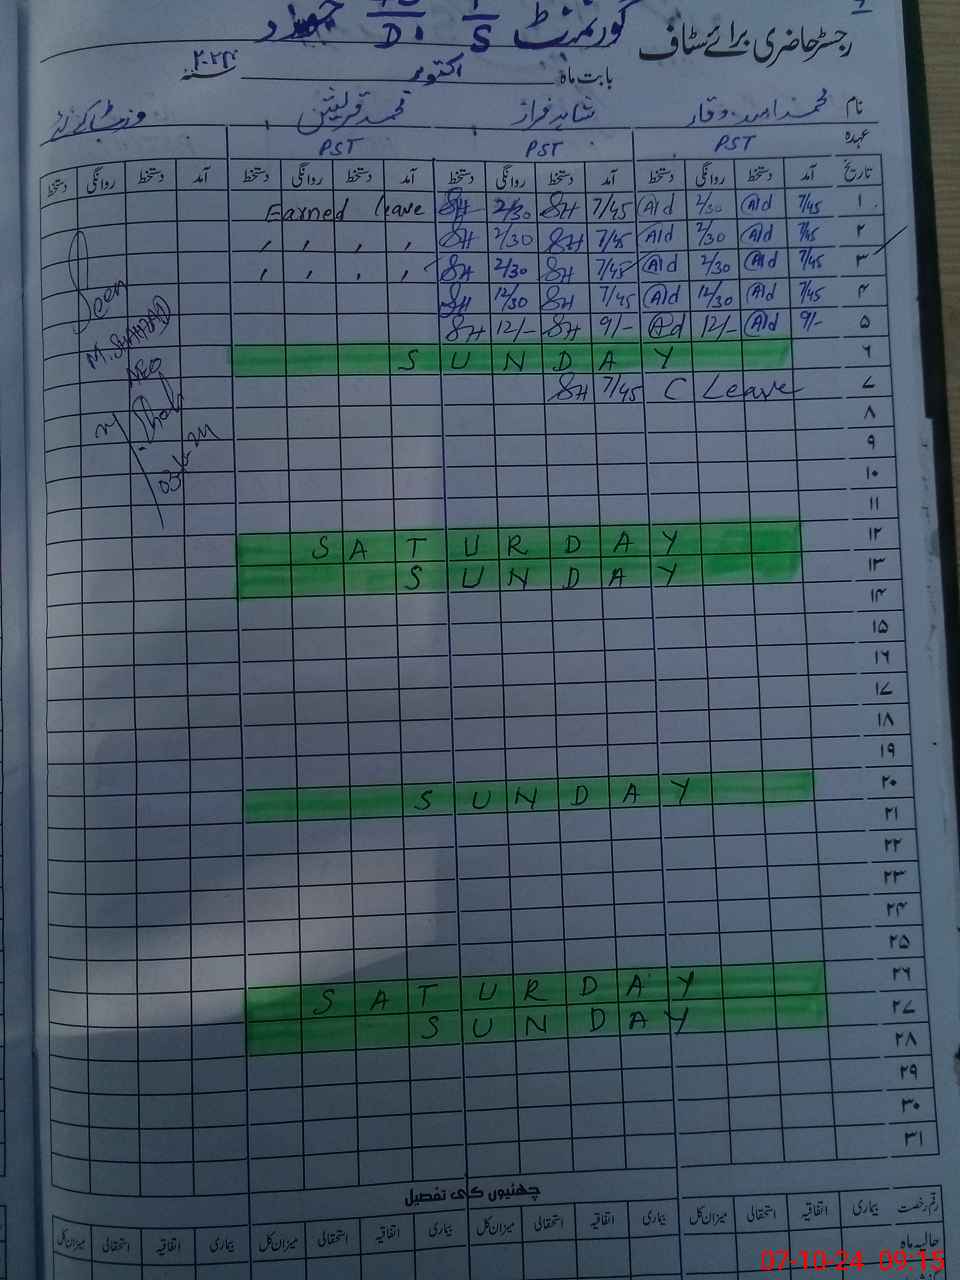 رجسٹر حاضری برائے سٹاف گورنمنٹ
P/S
D.
بابت ماہ اکتوبر سنہ ۲۰۲۴
نام شاہد فراز محمد
عہدہ PST PST PST
تاریخ آمد دستخط روانگی دستخط آمد دستخط روانگی دستخط آمد دستخط روانگی دستخط آمد دستخط روانگی دستخط
۱ 7/45 Ald 2/30 Ald 7/45 SH 2/30 SH Earned leave
۲ 7/45 Ald 2/30 Ald 7/45 SH 2/30 SH , , , ,
۳ 7/45 Ald 2/30 Ald 7/45 SH 2/30 SH , , , ,
۴ 7/45 Ald 12/30 Ald 7/45 SH 12/30 SH
۵ 9/- Ald 12/- Ald 9/- SH 12/- SH
۶ SUNDAY
۷ C Leave 7/45 SH
۸
۹
۱۰
۱۱
۱۲ SATURDAY
۱۳ SUNDAY
۱۴
۱۵
۱۶
۱۷
۱۸
۱۹
۲۰ SUNDAY
۲۱
۲۲
۲۳
۲۴
۲۵
۲۶ SATURDAY
۲۷ SUNDAY
۲۸
۲۹
۳۰
۳۱
Seen
M. SHAHZAD
AEO
چھٹیوں کی تفصیل
رقم رخصت بیماری اتفاقیہ استحقاقی میزان کل بیماری اتفاقیہ استحقاقی میزان کل بیماری اتفاقیہ استحقاقی میزان کل بیماری اتفاقیہ استحقاقی میزان کل
حالیہ ماہ
07-10-24 09:15